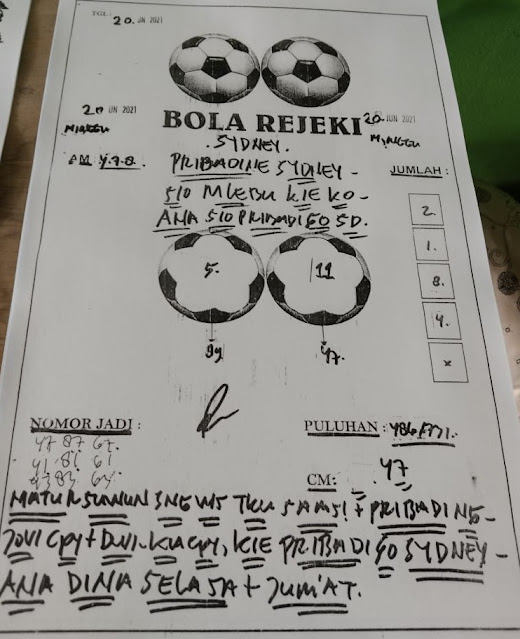 TGL :
20. JUN 2021
20 JUN 2021
20 JUN 2021
BOLA REJEKI
MINGGU
MINGGU
. SYDNEY.
AM 4.7.8.
JUMLAH :
PRIBADINE SYDNEY-
SIO MLEBU KIE KO-
ANA SIO PRIBADI GO SD.
2.
1.
8.
4.
x
5.
11
47.
NOMOR JADI :
PULUHAN : 486/771.
47 87 67.
41 81 61
CM: 47
MATUR SUWUN + PRIBADINE-
JOVI CPY + DWI. KIE PRIBADI GO SYDNEY-
ANA DINA SELASA + JUM'AT.